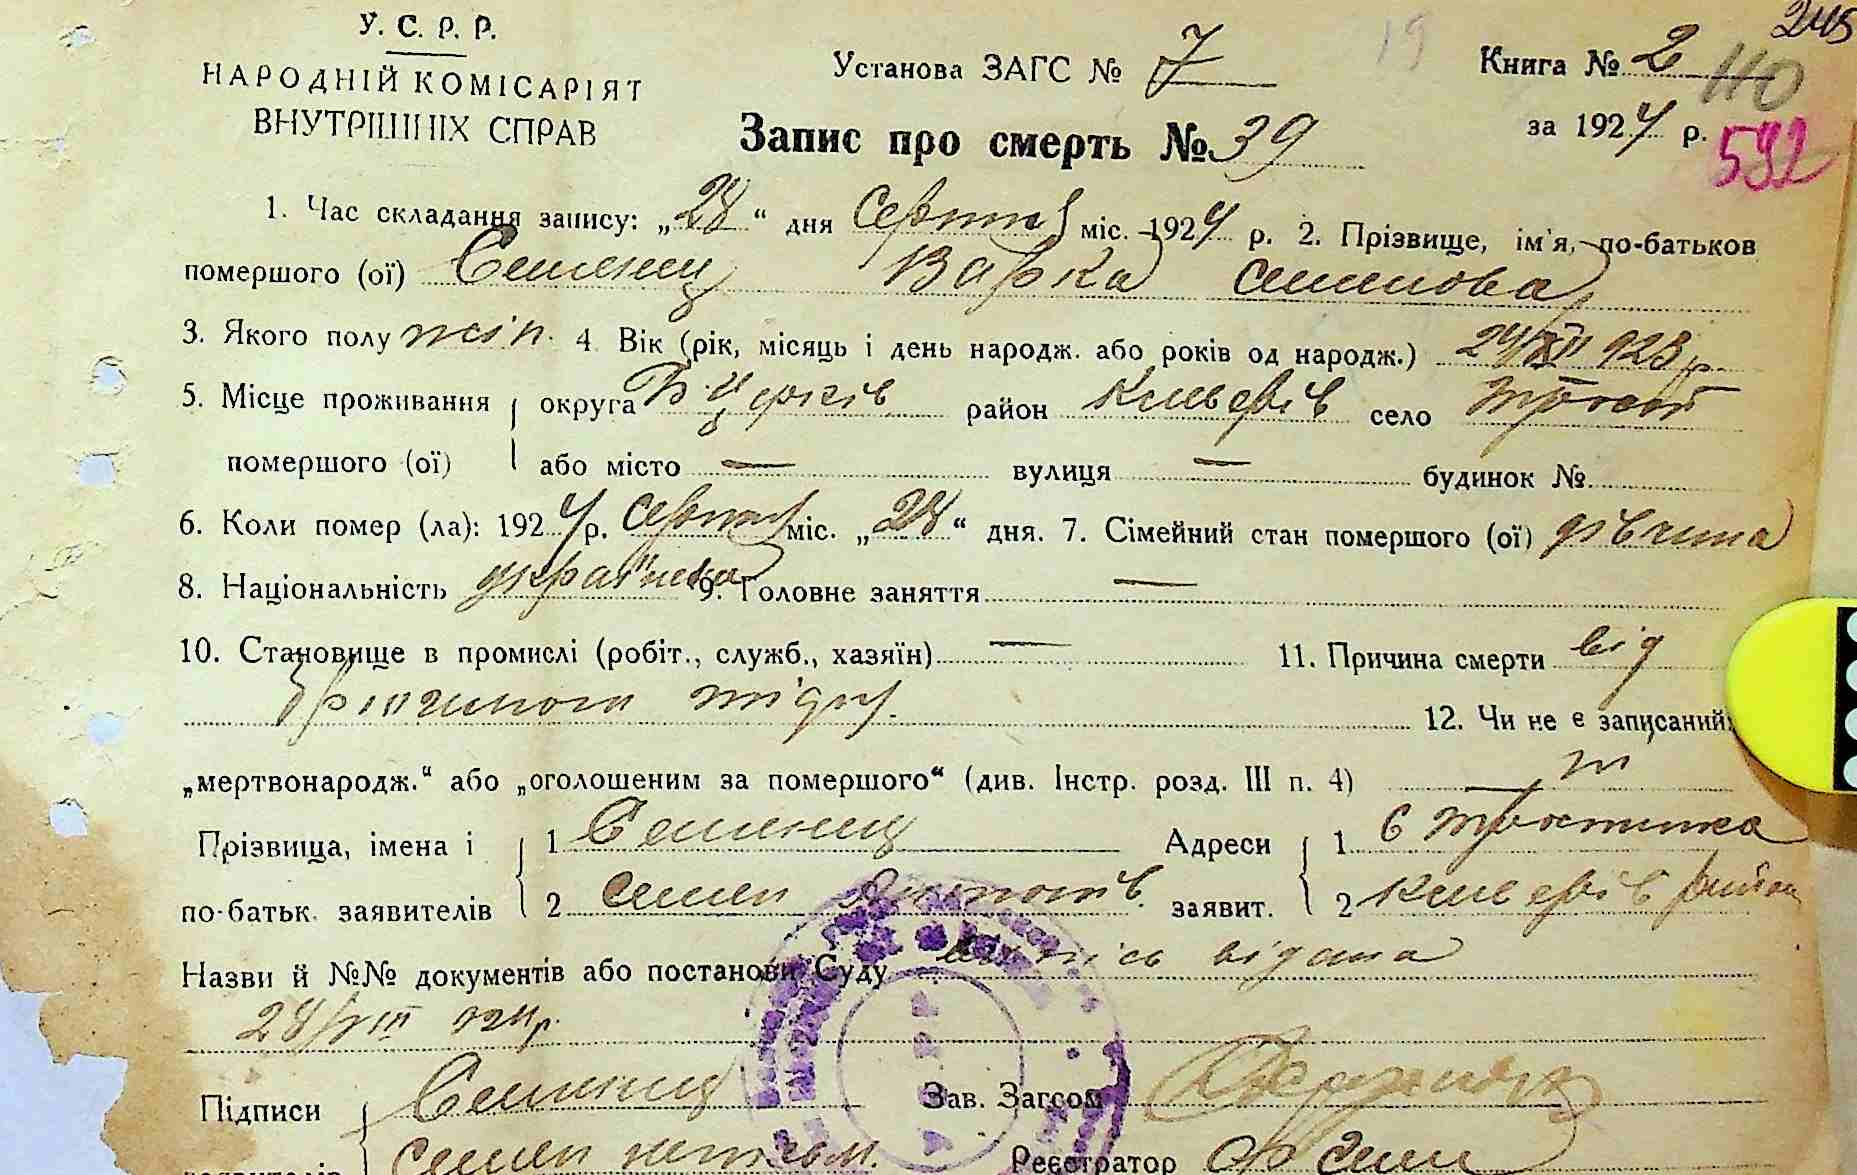 245
У. С. Р. Р.
НАРОДНІЙ КОМІСАРІЯТ
ВНУТРІШНІХ СПРАВ
Установа ЗАГС № 7
19
Книга № 2
110
за 1924 р.
592
Запис про смерть № 39
1. Час складання запису: „28“ дня Серпня міс. 1924 р. 2. Прізвище, ім'я, по-батьков
помершого (ої) Семенец Варка Семенова
3. Якого полу жін. 4 Вік (рік, місяць і день народж. або років од народж.) 24/XII 923 р.
5. Місце проживання округа Б Церків район село
помершого (ої) або місто — вулиця — будинок №
6. Коли помер (ла): 1924 р. Серпня міс. „28“ дня. 7. Сімейний стан помершого (ої) дівчина
8. Національність українка 9. Головне заняття —
10. Становище в промислі (робіт., служб., хазяїн) — 11. Причина смерти від
12. Чи не є записаний:
„мертвонародж.“ або „оголошеним за помершого“ (див. Інстр. розд. III п. 4) —
Прізвища, імена і 1 Семенец Адреси 1 с
по-батьк. заявителів 2 Семен заявит. 2 район
Назви й №№ документів або постанови Суду випись видана
28/VIII 924 р.
Підписи Семенец Зав. Загсом
заявителів Семен Реєстратор